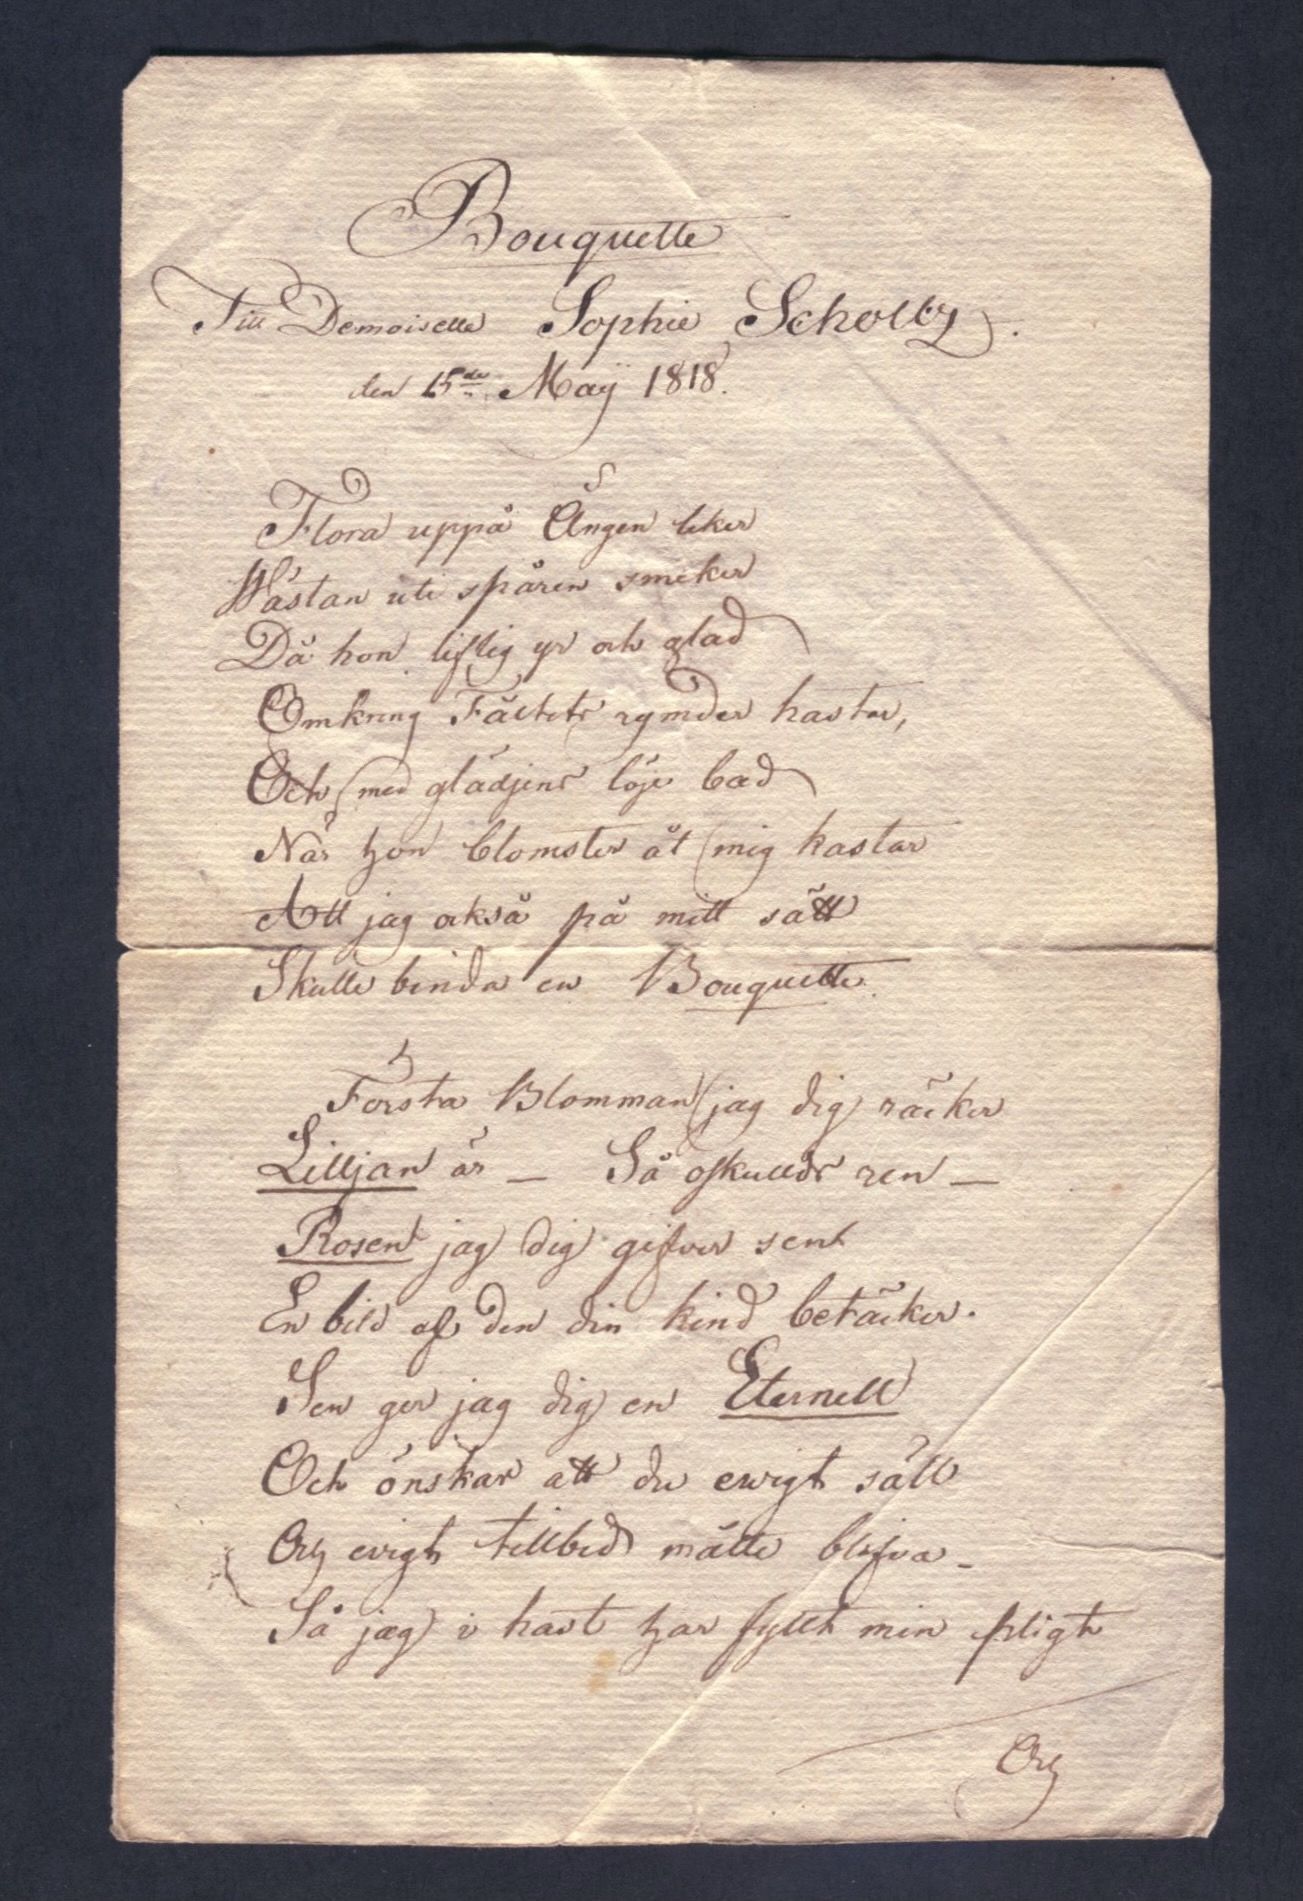 Bouquette
Till Demoiselle Sophie Scholtz.
den 15de Maÿ 1818.
Flora uppå Ängen leker
Wästan uti spåren smeker
Då hon liflig yr och glad
Omkring Fästets rymder hastar,
Och med glädjens löje bad
När hon blomster åt mig kastar
Att jag också på mitt sätt
Skulle binda en Bouquette.
Första Blomman jag dig räcker
Lilljan är — Så oskulds ren —
Rosen jag dig gifver sen
En bild af den din kind betäcker.
Sen ger jag dig en Eternell
Och önskar att du ewigt säll
Och evigt tillbed måtte blifva –
Så jag i hast har fyllt min pligt
Och